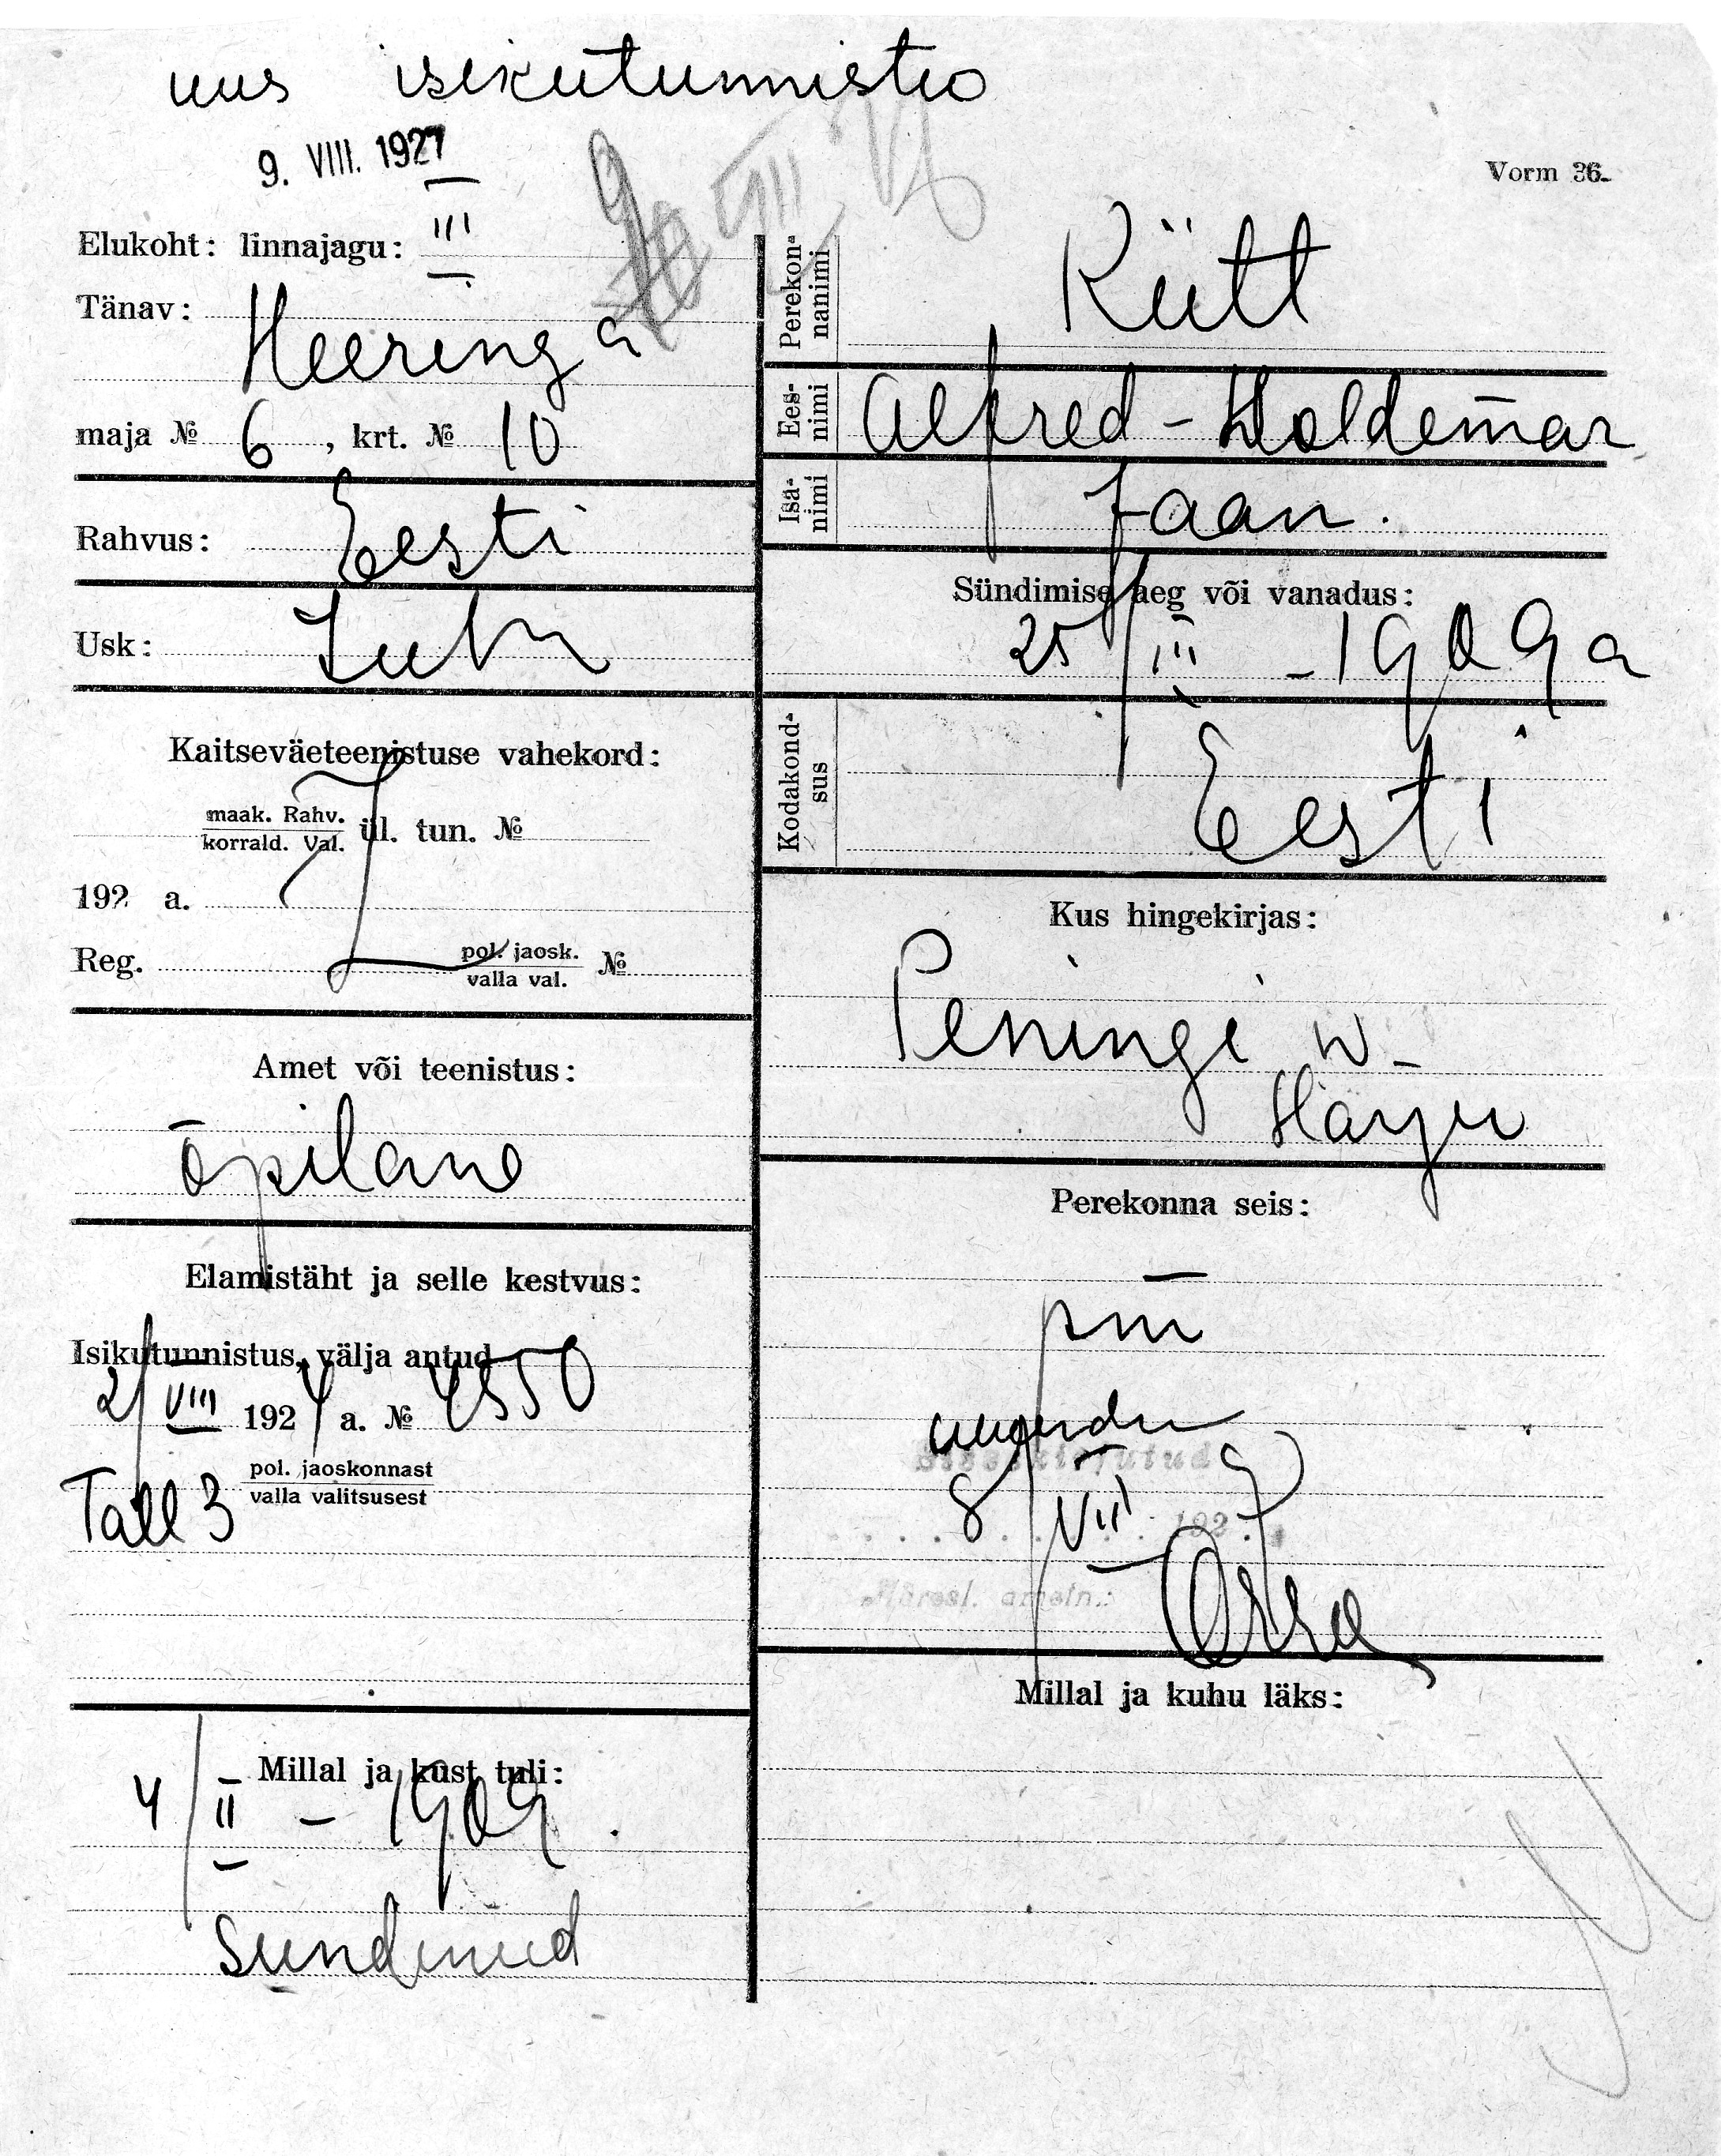 uus isikutunnistus
9. VIII. 1927
Vorm 36.
Elukoht: linnajagu: III
Tänav: Heeringa
maja № 6, krt. № 10
Rahvus: Eesti
Usk: Luth
Kaitseväeteenistuse vahekord:
maak. Rahv.
korrald. Val. ül. tun. №
192 a.
Reg. pol. jaosk.
valla val. №
Amet või teenistus:
õpilane
Elamistäht ja selle kestvus:
Isikutunnistus, välja antud
2/VIII 1924 a. № 4550
Tall 3 pol. jaoskonnast
valla valitsusest
Millal ja kust tuli:
4/II - 1909.
Sündinud
Perekon-
nanimi
Kütt
Ees-
nimi
Alfred-Woldemar
Isa-
nimi
Jaan.
Sündimise aeg või vanadus:
25/III - 1909 a
Kodakond-
sus
Eesti
Kus hingekirjas:
Peningi w.
Harju
Perekonna seis:
Sissekirjutud
8/VIII 1927
Millal ja kuhu läks: